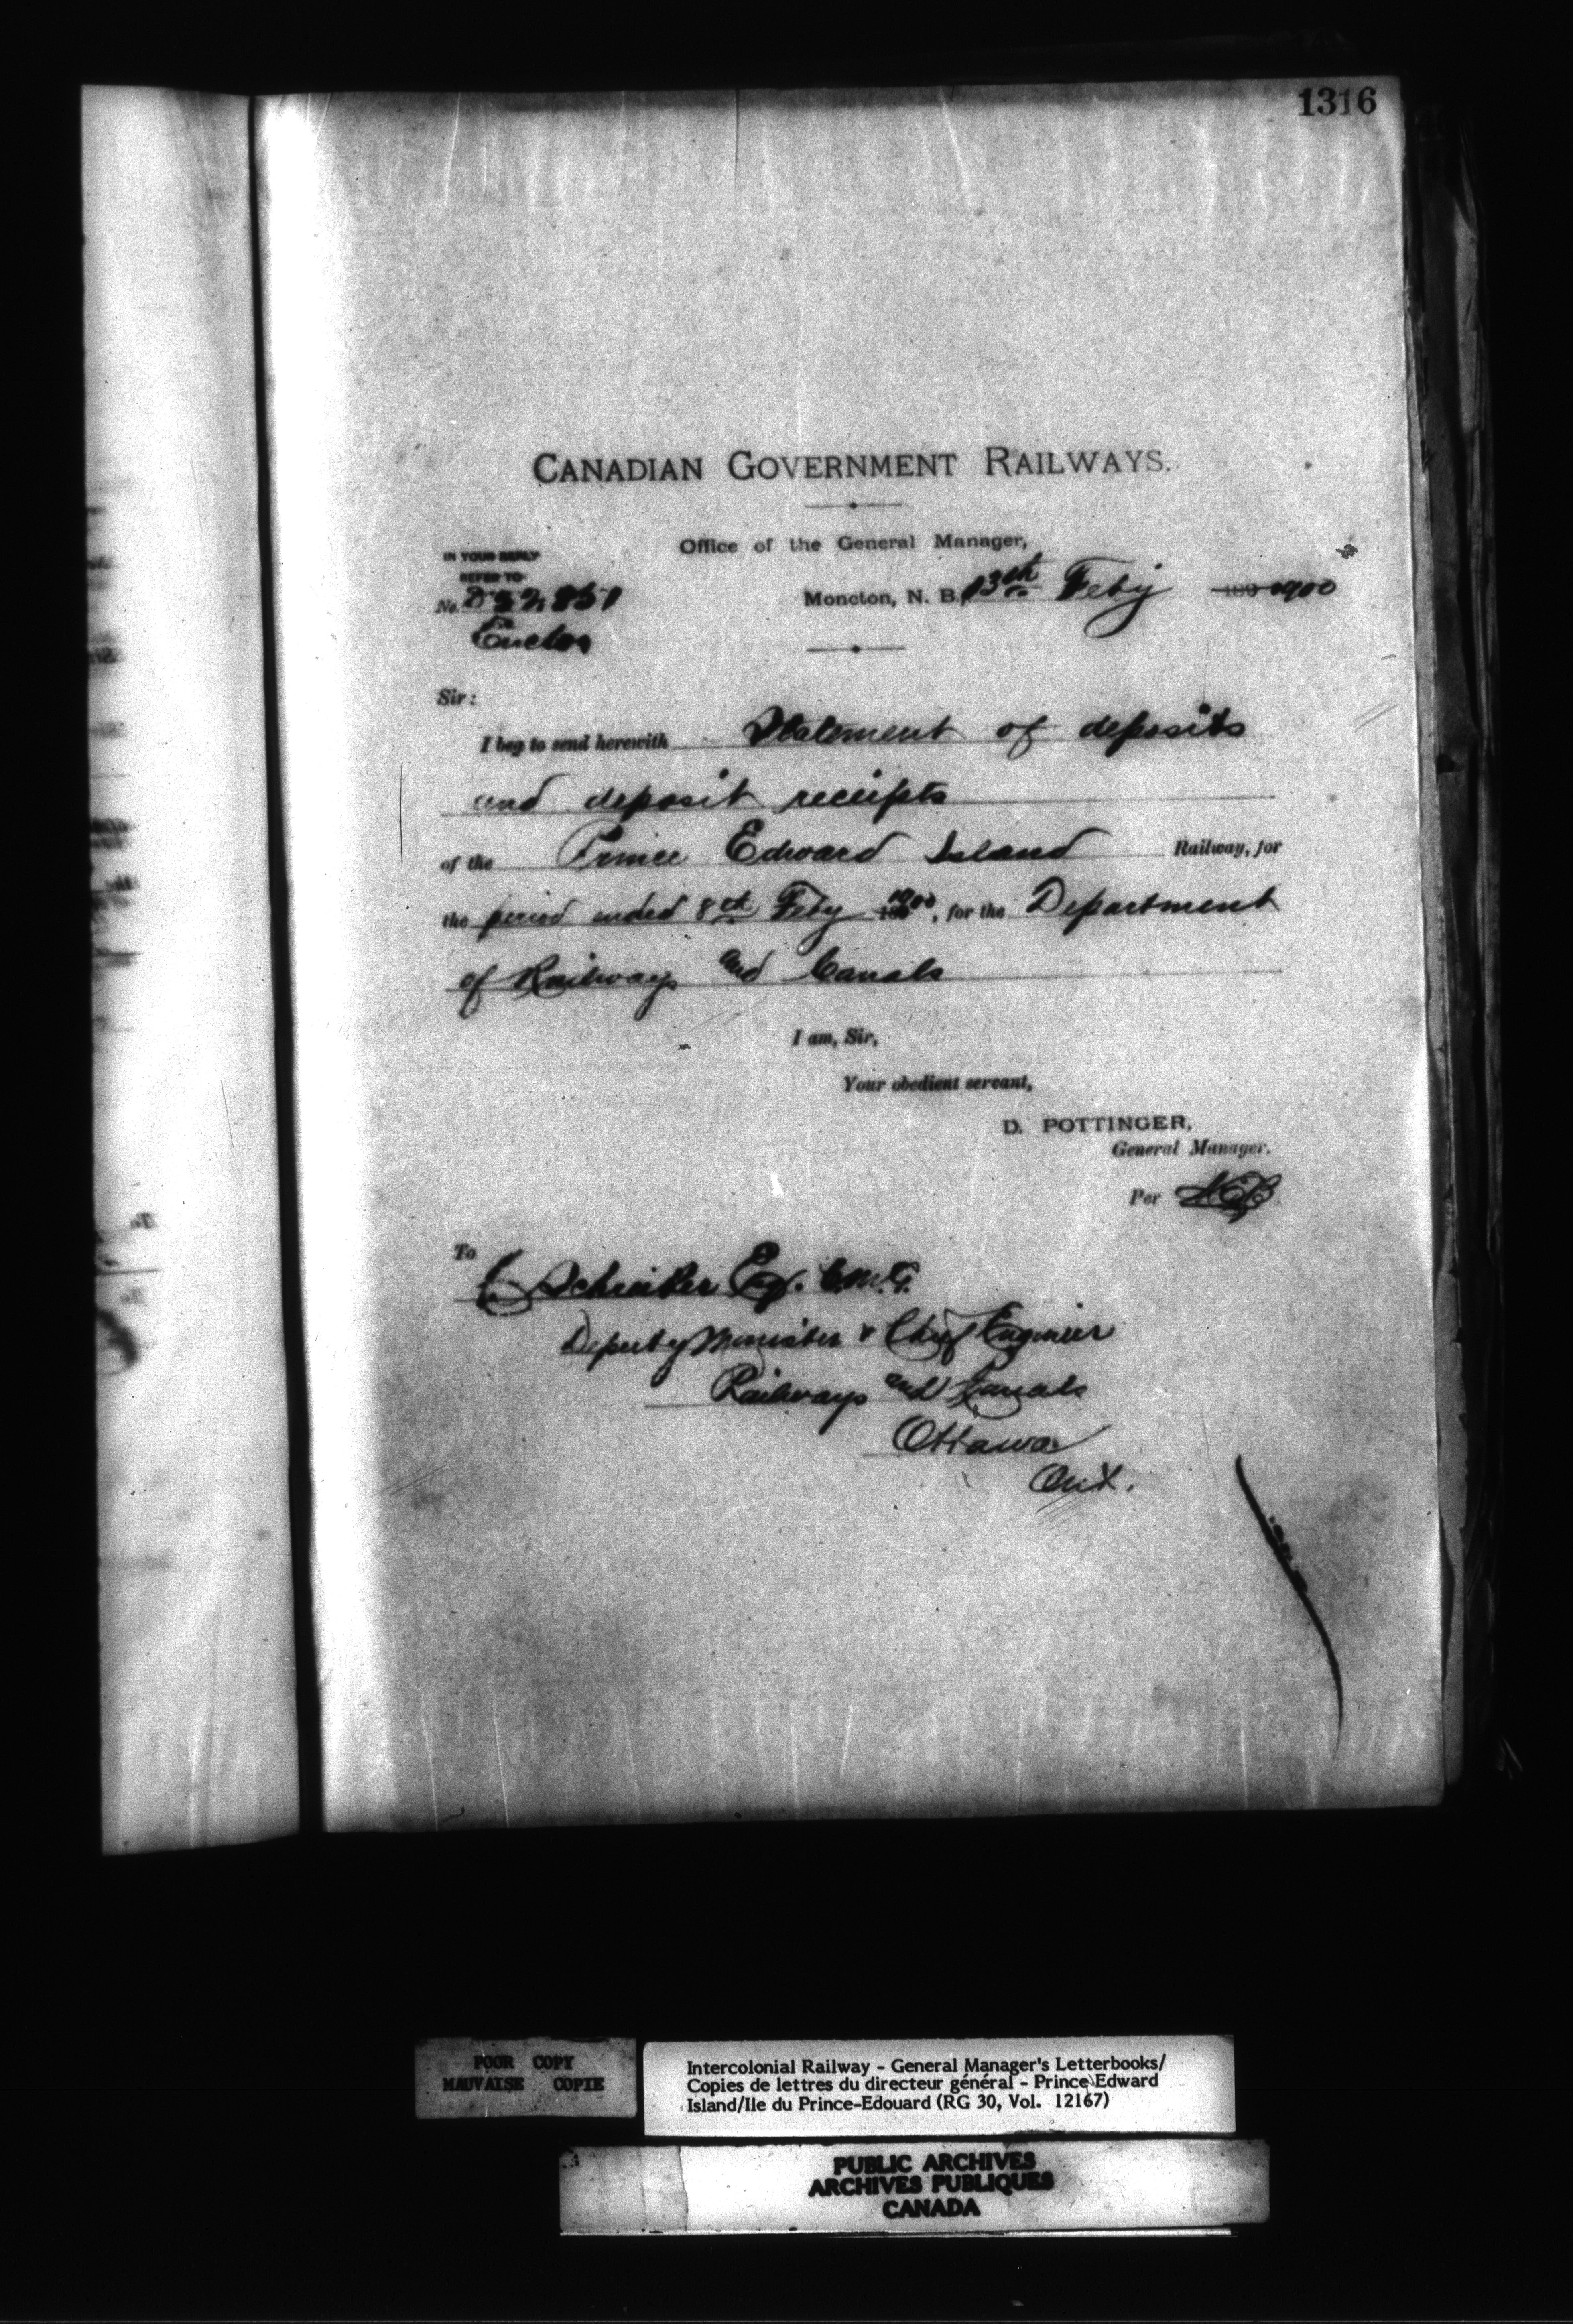 1316
CANADIAN GOVERNMENT RAILWAYS.
Office of the General Manager,
IN YOUR REPLY
REFER TO
No.
Moncton, N. B. 13th Feby 1900
Sir:
I beg to send herewith Statement of deposits
and deposit receipts
of the Prince Edward Island Railway, for
the period ended 8th Feby 1900, for the Department
of Railways and Canals
I am, Sir,
Your obedient servant,
D. POTTINGER,
General Manager.
Per
To
C Schreiber Esq. C.M.G.
Deputy Minister & Chief Engineer
Railways and Canals
Ottawa
Ont.
POOR COPY
MAUVAISE COPIE
Intercolonial Railway - General Manager's Letterbooks/
Copies de lettres du directeur général - Prince Edward
Island/Ile du Prince-Edouard (RG 30, Vol. 12167)
PUBLIC ARCHIVES
ARCHIVES PUBLIQUES
CANADA